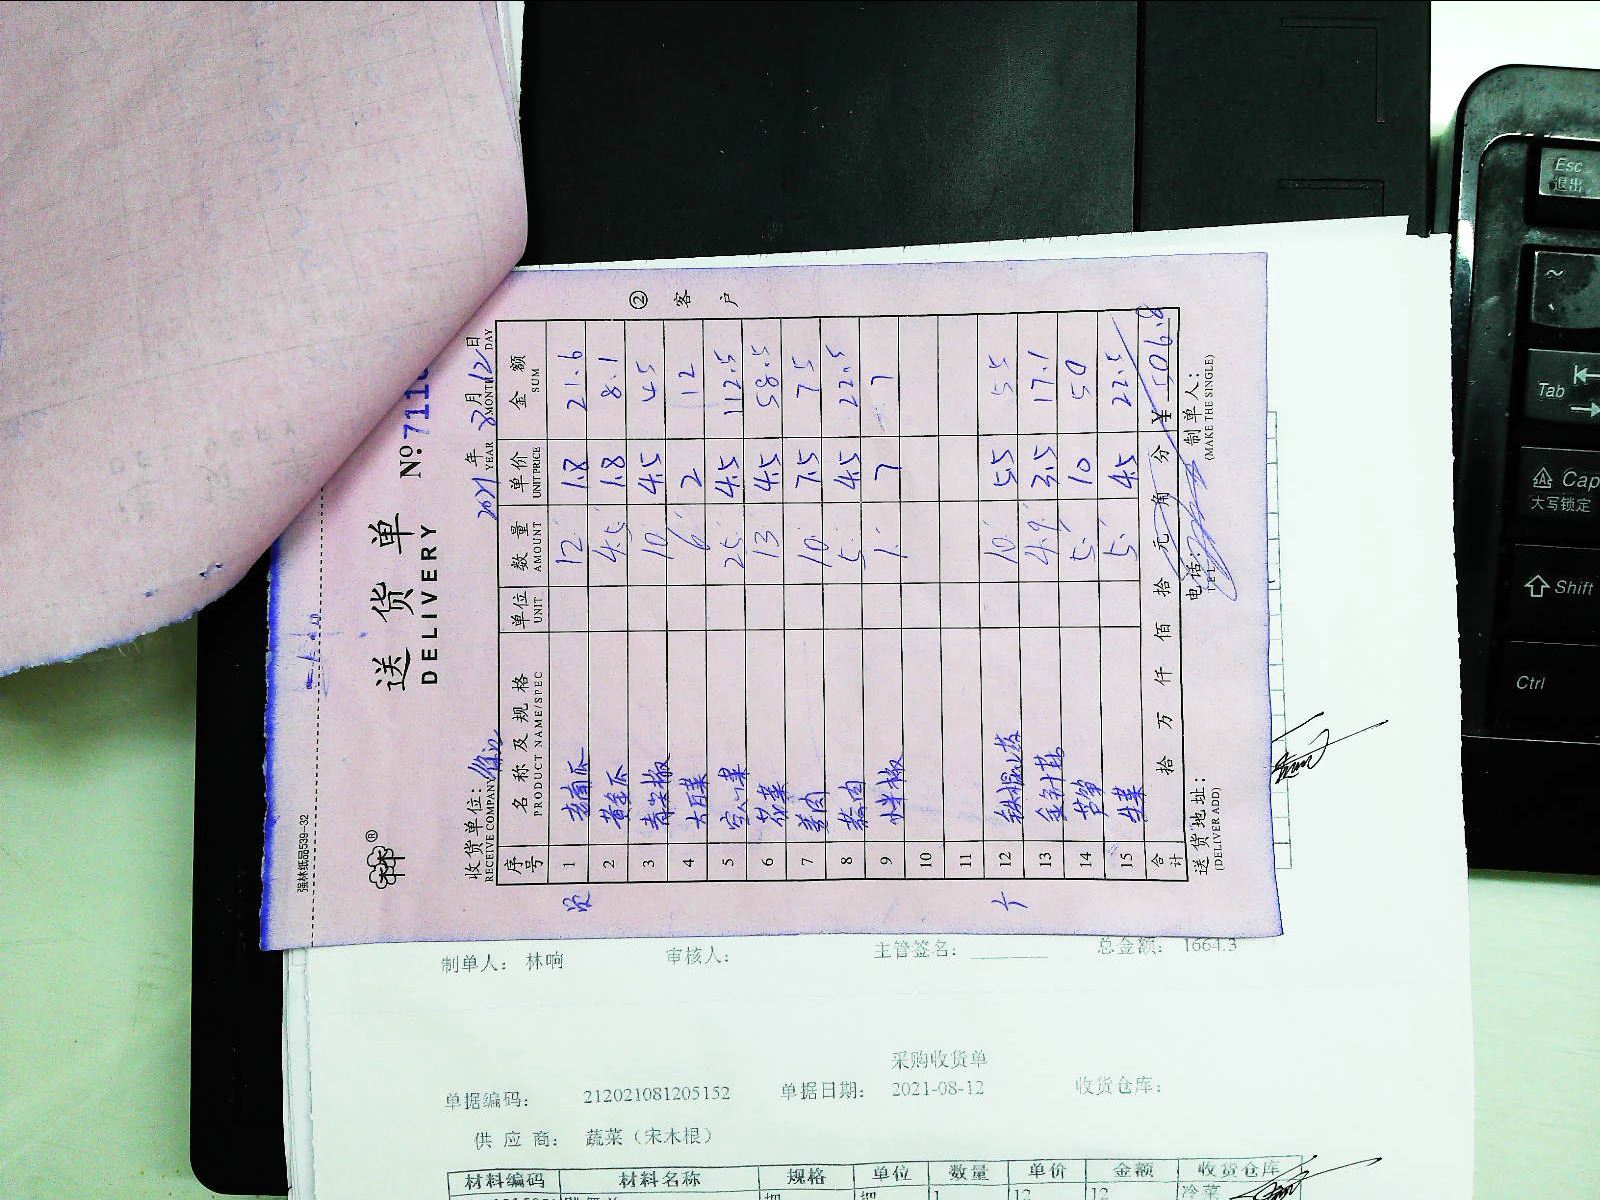 强林纸品539-32
送货单
DELIVERY
№711
收货单位：
RECEIVE COMPANY
2021 年 8 月 12 日
YEAR MONTH DAY
② 客户
序号 名称及规格 单位 数量 单价 金额
PRODUCT NAME/SPEC UNIT AMOUNT UNIT PRICE SUM
1 12 1.8 21.6
2 黄金瓜 4.5 1.8 8.1
3 10 4.5 45
4 大白菜 6 2 12
5 空心菜 25 4.5 112.5
6 花菜 13 4.5 58.5
7 姜肉 10 7.5 75
8 蒜肉 5 4.5 22.5
9 小米椒 1 7 7
10
11
12 铁棍山药 10 5.5 55
13 金针菇 4.9 3.5 17.1
14 芦笋 5 10 50
15 生菜 5 4.5 22.5
合计 拾 万 仟 佰 拾 元 角 分 ¥ 506.8
送货地址： 电话： 制单人：
(DELIVER ADD) TEL (MAKE THE SINGLE)
制单人： 林响 审核人： 主管签名： 总金额： 1664.3
采购收货单
单据编码： 212021081205152 单据日期： 2021-08-12 收货仓库：
供 应 商： 蔬菜（宋木根）
材料编码 材料名称 规格 单位 数量 单价 金额 收货仓库
把 把 1 12 12 冷菜
Esc
退出
~
Tab
Cap
大写锁定
Shift
Ctrl